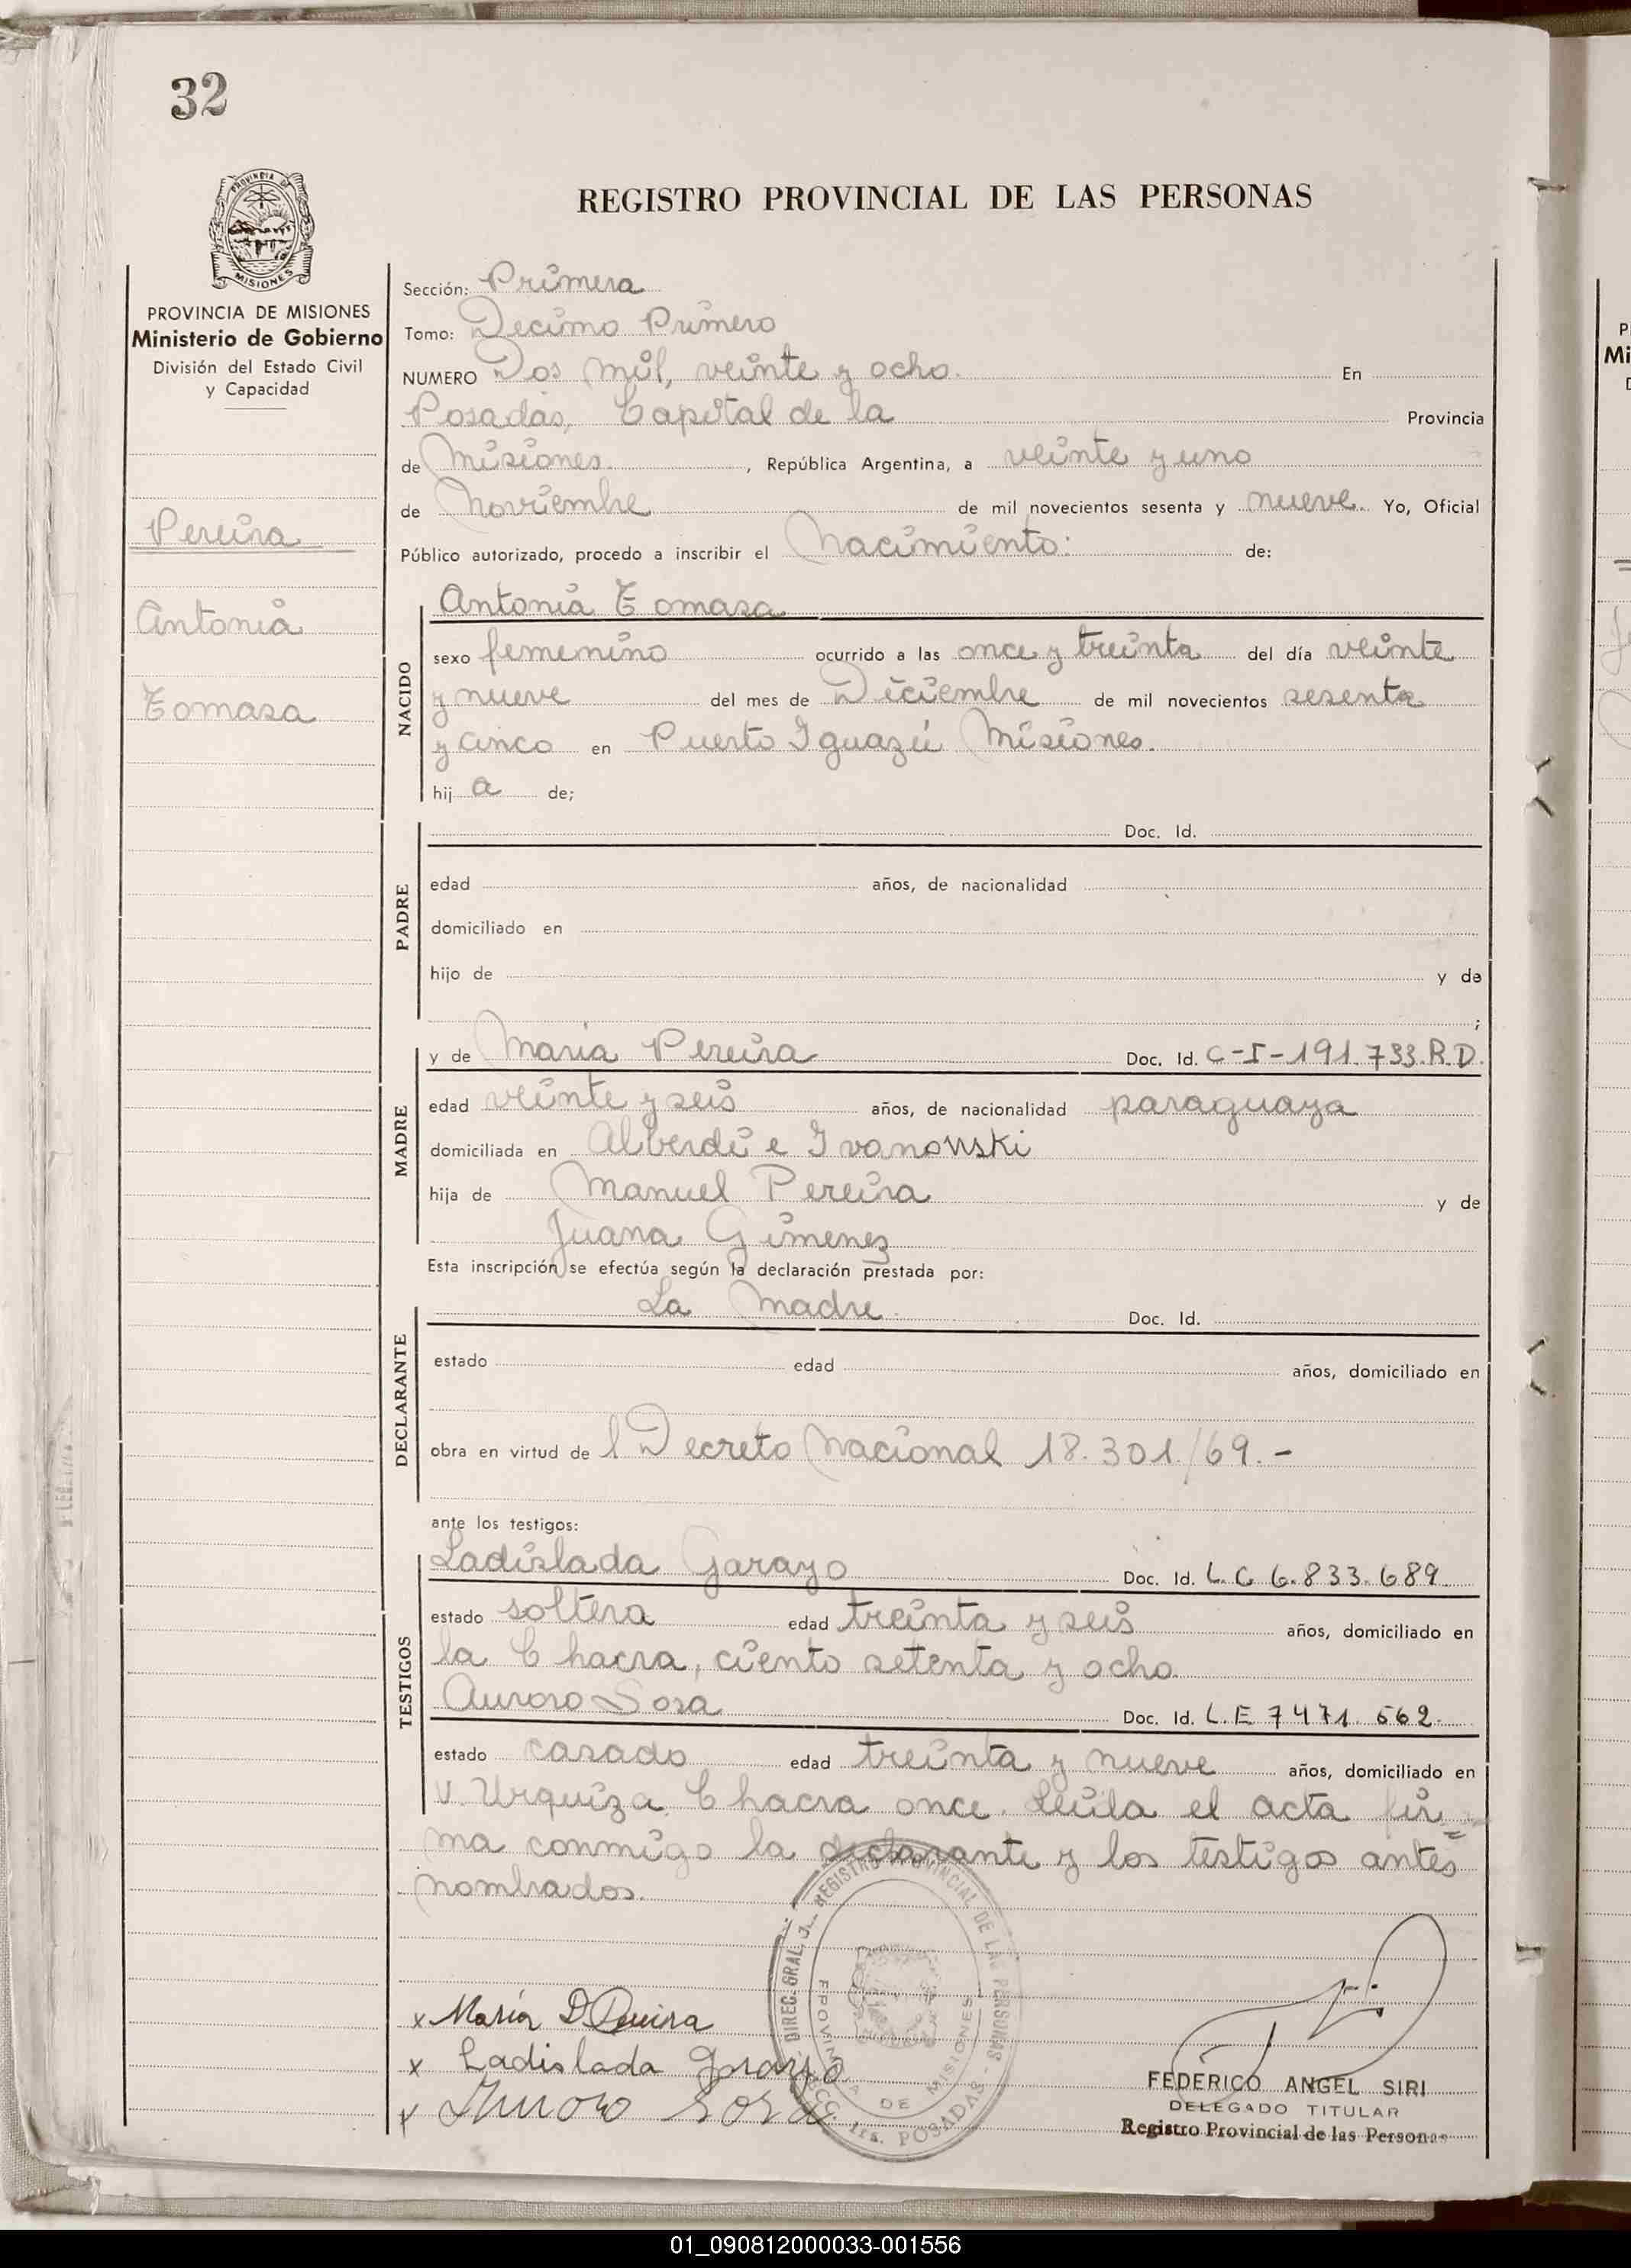 32
REGISTRO PROVINCIAL DE LAS PERSONAS
PROVINCIA DE
MISIONES
PROVINCIA DE MISIONES
Ministerio de Gobierno
División del Estado Civil
y Capacidad
Pereira
Antonia
Tomasa
Sección: Primera
Tomo: Decimo Primero
NUMERO Dos mil, veinte y ocho. En
Posadas, Capital de la Provincia
de Misiones. , República Argentina, a veinte y uno
de Noviembre de mil novecientos sesenta y nueve. Yo, Oficial
Público autorizado, procedo a inscribir el Nacimiento: de:
NACIDO
Antonia Tomasa
sexo femenino ocurrido a las once y treinta del día veinte
y nueve del mes de Diciembre de mil novecientos sesenta
y cinco en Puerto Iguazú Misiones.
hij a de;
PADRE
Doc. Id.
edad años, de nacionalidad
domiciliado en
hijo de y de
;
MADRE
y de Maria Pereira Doc. Id. C-I-191.733.R.D.
edad veinte y seis años, de nacionalidad paraguaya
domiciliada en Alberdi e Ivanowski
hija de Manuel Pereira y de
Juana Gimenez
Esta inscripción se efectúa según la declaración prestada por:
DECLARANTE
La Madre. Doc. Id.
estado edad años, domiciliado en
obra en virtud de l Decreto Nacional 18.301/69.-
ante los testigos:
TESTIGOS
Ladislada Garayo Doc. Id. L.C 6.833.689
estado soltera edad treinta y seis años, domiciliado en
la Chacra, ciento setenta y ocho.
Auroro Sosa Doc. Id. L.E 7471.562.
estado casado edad treinta y nueve años, domiciliado en
V. Urquiza Chacra once. Leida el acta fir=
ma conmigo la declarante y los testigos antes
nombrados.
DIREC. GRAL. REGISTRO PROVINCIAL DE LAS PERSONAS -
PROVINCIA DE MISIONES
SECC. 1ra. POSADAS
x María D Pereira
x Ladislada Garayo
x Auroro Sosa
FEDERICO ANGEL SIRI
DELEGADO TITULAR
Registro Provincial de las Personas
01_090812000033-001556